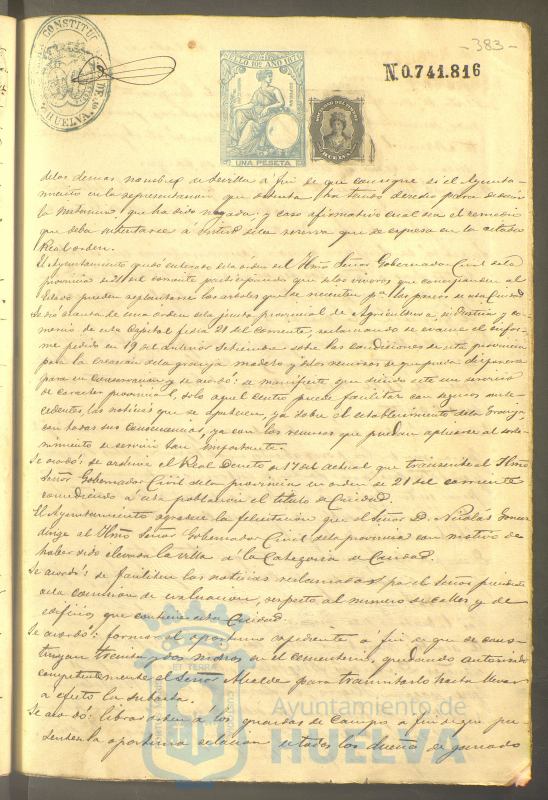 CONSTITUC
HUELVA
- 383 -
SELLO DE AÑO 1876
UNA PESETA
N. 0.741.816
de los demas nombres de Sevilla a fin de que consigne si el Ayunta
miento en la representacion que ostenta ha tenido derecho para
la que ha sido negada; y caso afirmativo cual sea el remedio
que deba intentarse a virtud de la reserva que se expresa en la citada
Real orden.
El Ayuntamiento quedó enterado de la orden del Ilmo Señor Gobernador Civil de la
provincia de 21 del corriente participando que de los viveros que correspondan al
Estado pueden replantarse los arboles que se necesiten pa los paseos de esta Ciudad
Se dio cuenta de una orden de la junta provincial de Agricultura, industria y co-
mercio de esta Capital fecha 21 del corriente reclamando se evacue el infor-
me pedido en 19 del anterior Setiembre sobre las condiciones de esta provincia
para la creacion de la granja modelo y de los recursos de que pueda disponerse
para su conservacion y se acordó: se manifieste que siendo este un servicio
de caracter provincial, solo aquel centro puede facilitar con seguros ante-
cedentes las noticias que se apetecen, ya sobre el establecimiento de la Granja
con todas sus consecuencias, ya con los recursos que puedan aplicarse al soste-
nimiento de servicio tan importante.
Se acordó se archive el Real Decreto de 17 del actual que transcribe el Ilmo
Señor Gobernador Civil de la provincia en orden de 21 del corriente
concediendo a esta poblacion el titulo de Ciudad.
El Ayuntamiento agradece la felicitacion que el Señor D. Nicolás Gomez
dirige al Ilmo Señor Gobernador Civil de la provincia con motivo de
haber sido elevada la villa a la Categoria de Ciudad.
Se acordó: se faciliten las noticias reclamadas por el Señor presidente
de la comision de evaluacion, respecto al numero de calles y de
edificios que contiene esta Ciudad.
Se acordó: formar el oportuno expediente a fin de que se cons-
truyan treinta y dos nichos en el cementerio, quedando autorizado
competentemente el Señor Alcalde para tramitarlo hasta llevar
a efecto la subasta.
Se acordó: librar orden a los guardas de Campo a fin de que pre
senten la oportuna relacion de todos los dueños de ganado
Ayuntamiento de
HUELVA